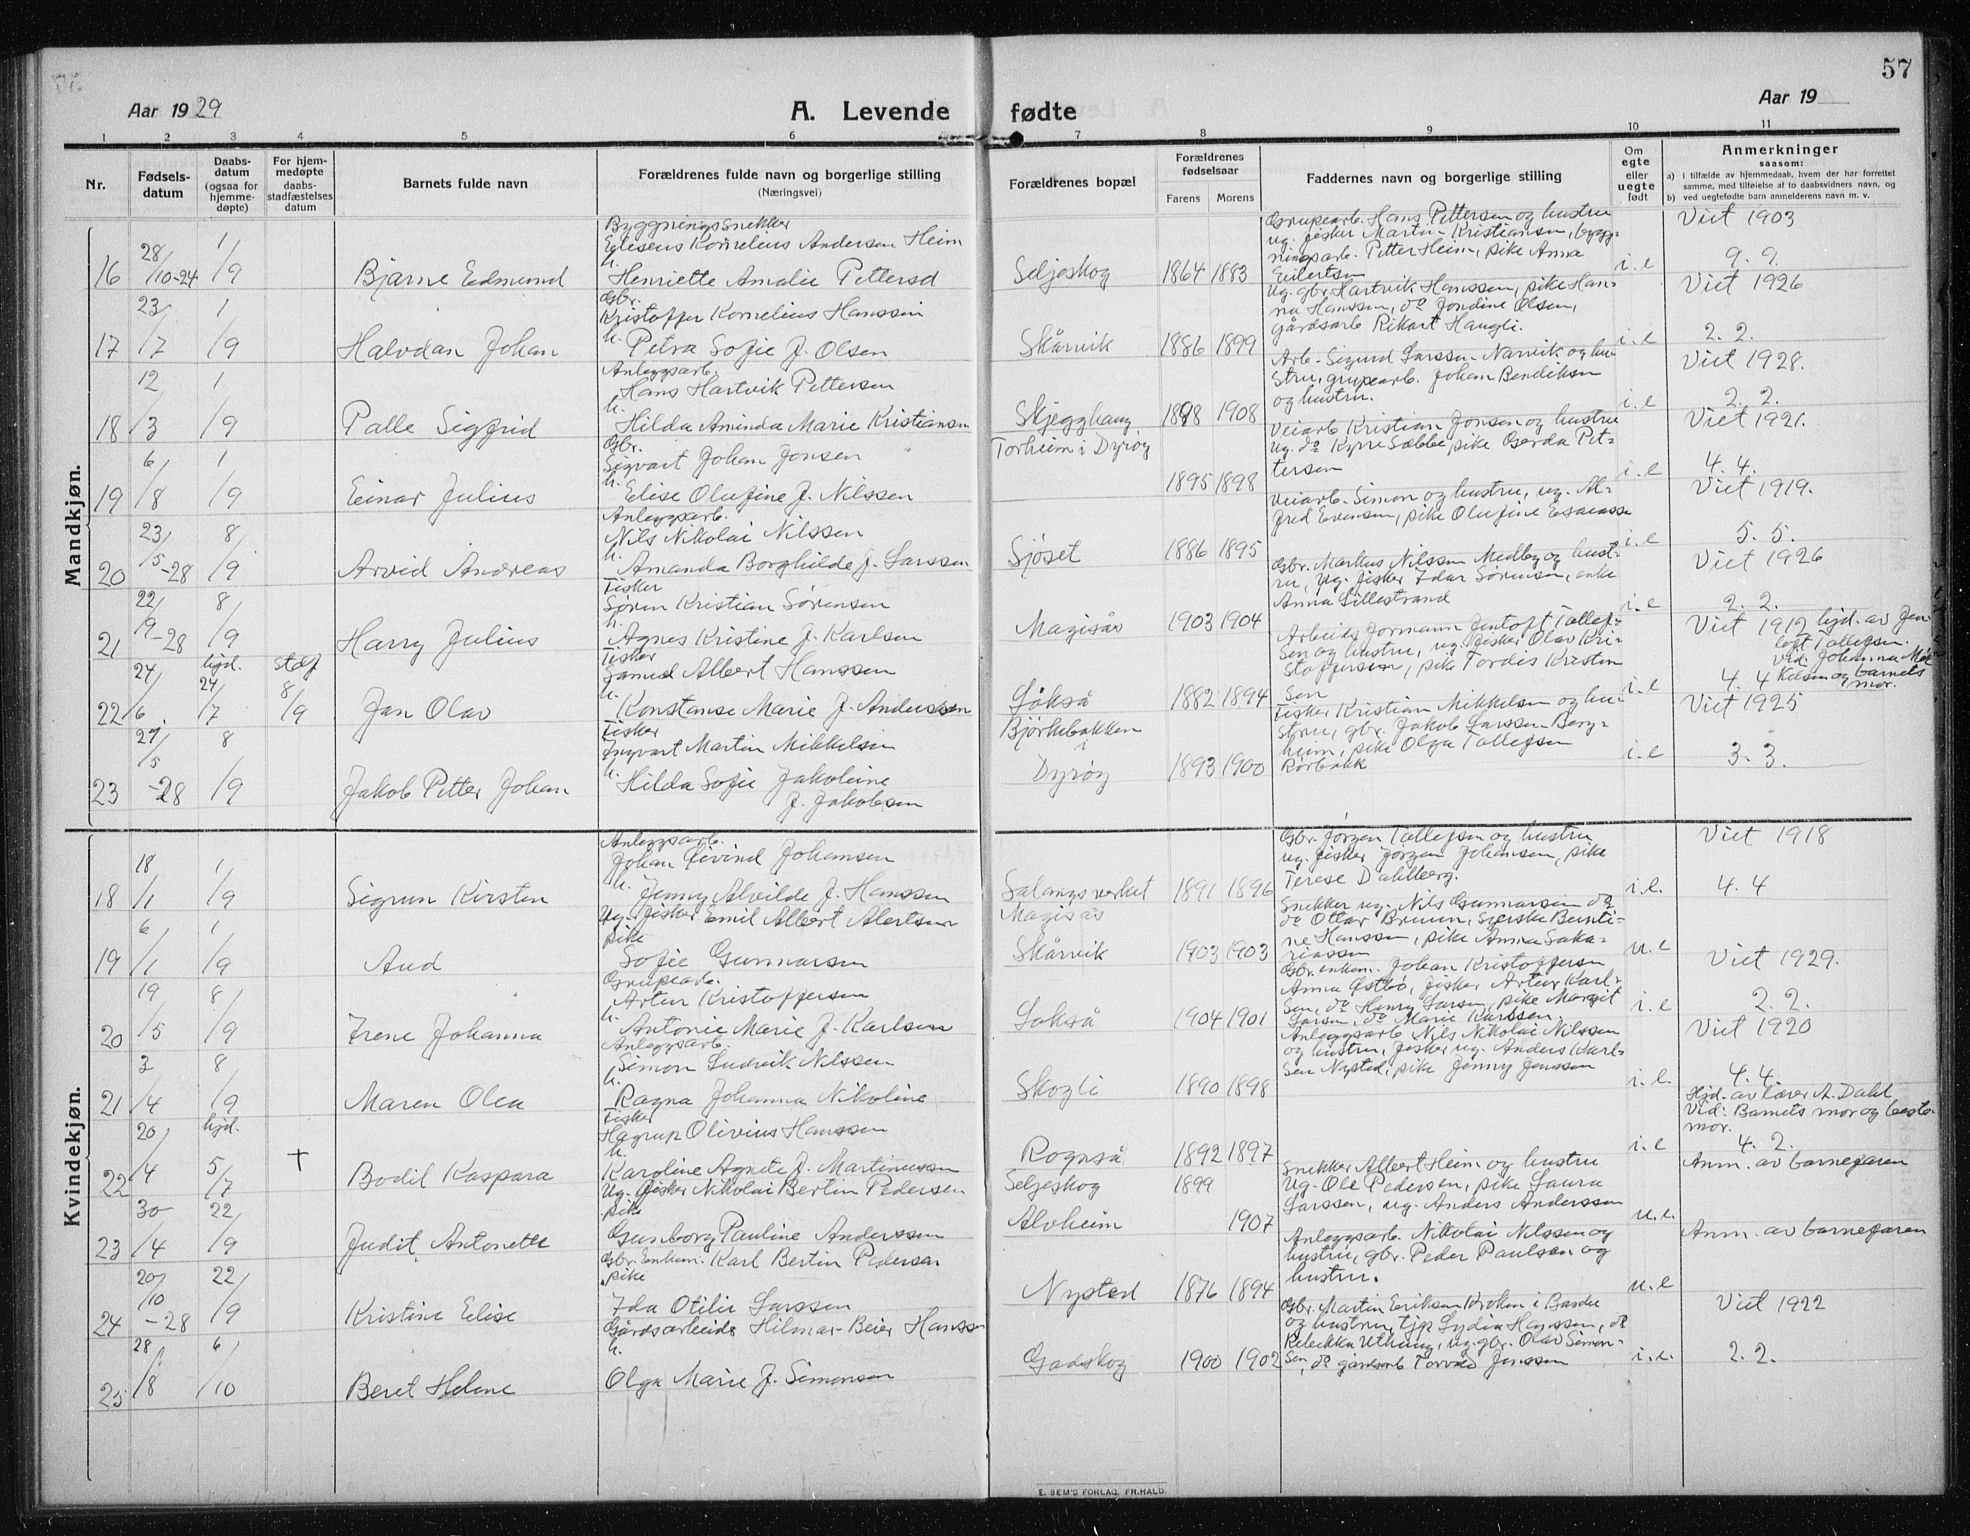 57
Aar 1929
A. Levende fødte
Aar 19
1 2 3 4 5 6 7 8 9 10 11
Nr.
Fødsels-
datum
Daabs-
datum
(ogsaa for
hjemme-
døpte)
For hjem-
medøpte
daabs-
stadfæstelses
datum
Barnets fulde navn
Forældrenes fulde navn og borgerlige stilling
(Næringsvei)
Forældrenes bopæl
Forældrenes
fødselsaar
Farens Morens
Faddernes navn og borgerlige stilling
Om
egte
eller
uegte
født
Anmerkninger
saasom:
a) i tilfælde av hjemmedaab, hvem der har forrettet
samme, med tilføielse af to daabsvidners navn, og
b) ved uegtefødte barn anmelderens navn m. v.
Mandkjøn.
16 28/10-24 1/9 Bjarne Edmund
Byggningssnekker
Edisens Kornelius Andersen Heim
h. Henriette Amalie Pettersd
Seljeskog 1864 1883
Grupearb. Hans Pettersen og hustru
ug. fisker Martin Kristiansen, bygg-
ningsarb. Petter Heim, pike Anna
Eilertsen
i.e Viet 1903
9. 9.
17 23/7 1/9 Halvdan Johan
Gbr.
Kristoffer Kornelius Hanssen
h. Petra Sofie J. Olsen
Skårvik 1886 1899
Ug. gbr Hartvik Hanssen, pike Han-
na Hanssen, do Jondine Olsen,
gårdsarb Rikart Haugli.
i.e Viet 1926
2. 2.
18 12/3 1/9 Palle Sigfrid
Anleggsarb.
Hans Hartvik Pettersen
h. Hilda Aminda Marie Kristiansen
Skjegghaug 1898 1908
Arb. Sigurd Larssen Narvik og hu-
stru, grupearb. Johan Bendiksen
og hustru.
i.e Viet 1928.
2. 2.
19 6/8 1/9 Einar Julius
Gbr.
Sigvart Johan Jonsen
h. Elise Olufine J. Nilssen
Torheim i Dyrøy 1895 1898
Veiarb Kristian Jonsen og hustru
ug. do Kyrre Sæbbe, pike Gerda Pet-
tersen
i.e Viet 1921.
4. 4.
20 23/5-28 8/9 Arvid Andreas
Anleggsarb.
Nils Nikolai Nilssen
h. Amanda Borghilde J. Larssen
Sjöset 1886 1895
Veiarb. Simon og hustru, ug. Al-
fred Evensen, pike Olufine Esaiasse
i.e Viet 1919.
5. 5.
21 22/9-28 8/9 Harry Julius
Fisker
Søren Kristian Sörensen
h. Agnes Kristine J. Karlsen
Magisås 1903 1904
Gbr. Markus Nilssen Medby og hust-
ru, ug. fisker Idar Sörensen, enke
Anna Lillestrand
i.e Viet 1926
2. 2.
22 24/6 hjd. 24/7 stdf 8/9 Jan Olav
Fisker
Samuel Albert Hanssen
h. Konstanse Marie J. Anderssen
Lökså 1882 1894
Arbeider Jormann Jentoft Tollef-
sen og hustru, ug. fisker Olav Kri-
stoffersen, pike Tordis Kristen
sen
i.e Viet 1912 hjd. av Jen
toft Tollefsen.
vid: Johanna Mik
4. 4 kelsen og barnets
mor.
23 27/5-28 8/9 Jakob Petter Johan
Fisker
Ingvart Martin Mikkelsen
h. Hilda Sofie Jakobine
J. Jakobsen
Bjørkebakken
i
Dyröy 1893 1900
Fisker Kristian Mikkelsen og hu-
stru, gbr. Jakob Larssen Berg-
heim, pike Olga Tollefsen
Rörbakk
i.e Viet 1925
3. 3.
Kvindekjøn.
18 18/1 1/9 Sigrun Kirsten
Anleggsarb.
Johan Øivind Johansen
h. Jenny Alvilde J. Hanssen
Salangsverket 1891 1896
Gbr. Jörgen Tollefsen og hustru
ug. fisker Jörgen Johansen, pike
Terese Dahlberg.
i.e. Viet 1918
4. 4
19 6/1 1/9 Aud
Ug. fisker Emil Albert Alertsen
pike
Sofie Gunnarsen
Magisås
Skårvik 1903 1903
Snekker ug. Nils Gunnarsen do
do Ottar Bruun, Sverske Bernti-
ne Hanssen, pike Anna Saka-
riassen
u.e
20 19/5 8/9 Irene Johanna
Grupearb.
Artur Kristoffersen
h. Antonie Marie J. Karlsen
Lokså 1904 1901
Gbr. enkem. Johan Kristoffersen
Anna Østbö, fisker Artur Karl-
sen, do Henry Larsen, pike Margit
Larsen, do Marie Karlsen.
i.e Viet 1929.
2. 2.
21 3/4 8/9 Maren Olea
Anleggsarb.
Simon Ludvik Nilssen
h. Ragna Johanna Nikoline
Skogli 1890 1898
Anleggsarb Nils Nikolai Nilssen
og hustru, fisker ug. Anders Karl-
sen Nysted, pike Jenny Jenssen
i.e. Viet 1920
4. 4.
22 20/4 hjd. 5/7 † Bodil Kaspara
Fisker
Hagrup Olivius Hanssen
h.
Karoline Agnete J. Martinussen
Rognså 1892 1897
i.e Hjd. av lærer A. Dahl
Vid: Barnets mor og beste-
mor.
4. 2.
23 30/4 22/9 Judit Antonette
Ug. fisker Nikolai Bertin Pedersen
pike
Gunborg Pauline Anderssen
Seljeskog 1899
Alvheim 1907
Snekker Albert Heim og hustru
Ug. Ole Pedersen, pike Laura
Larssen, ug. Anders Anderssen
u.e. Anm. av barnefaren
24 20/10-28 22/9 Kristine Elise
Gbr. Enkem. Karl Bertin Pedersen
pike
Ida Otilie Larssen
Nysted 1876 1894
Anleggsarb. Nikolai Nilssen og
hustru, gbr. Peder Paulsen og
hustru.
u.e Anm. av barnefaren
25 28/8 6/10 Beret Helene
Gårdsarbeider Hilmar Beier Hanssen
h.
Olga Marie J. Simonsen
Godskog 1900 1902
Gbr. Martin Eriksen Krokan i Bardu
og hustru, tjp Lydia Hanssen, do
Rebekka Uthaug, ug. gbr. Olav Simon-
sen, do gårdsarb Torvald Jenssen
i.e. Viet 1922
2. 2.
E. SEM'S FORLAG, FR.HALD.